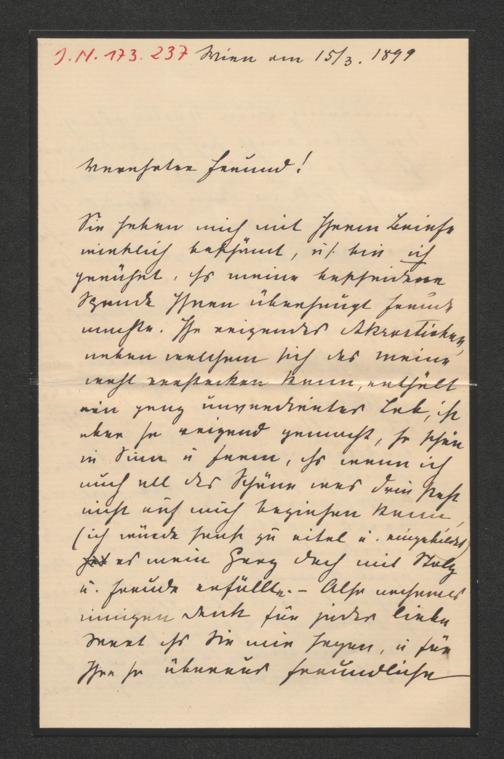 J.N. 173.237 Wien am 15/3. 1899
Verehrter Freund!
Sie haben mich mit Ihrem Briefe
wirklich beschämt, u. bin ich
gerührt, daß meine bescheidene
Spende Ihnen überhaupt Freude
machte. Ihr reizendes Akrostichon,
neben welchem sich das meine
recht verstecken kann, enthält
ein ganz unverdientes Lob, ist
aber so reizend gemacht, so schön
in Sinn u Form, daß wenn ich
auch all das Schöne was drin steht
nicht auf mich beziehen kann,
(ich würde sonst zu eitel u. eingebildet)
es mein Herz doch mit Stolz
u. Freude erfüllt. – Also nochmals
innigen Dank für jedes liebe
Wort das Sie mir sagen, u für
Ihre so überaus freundliche